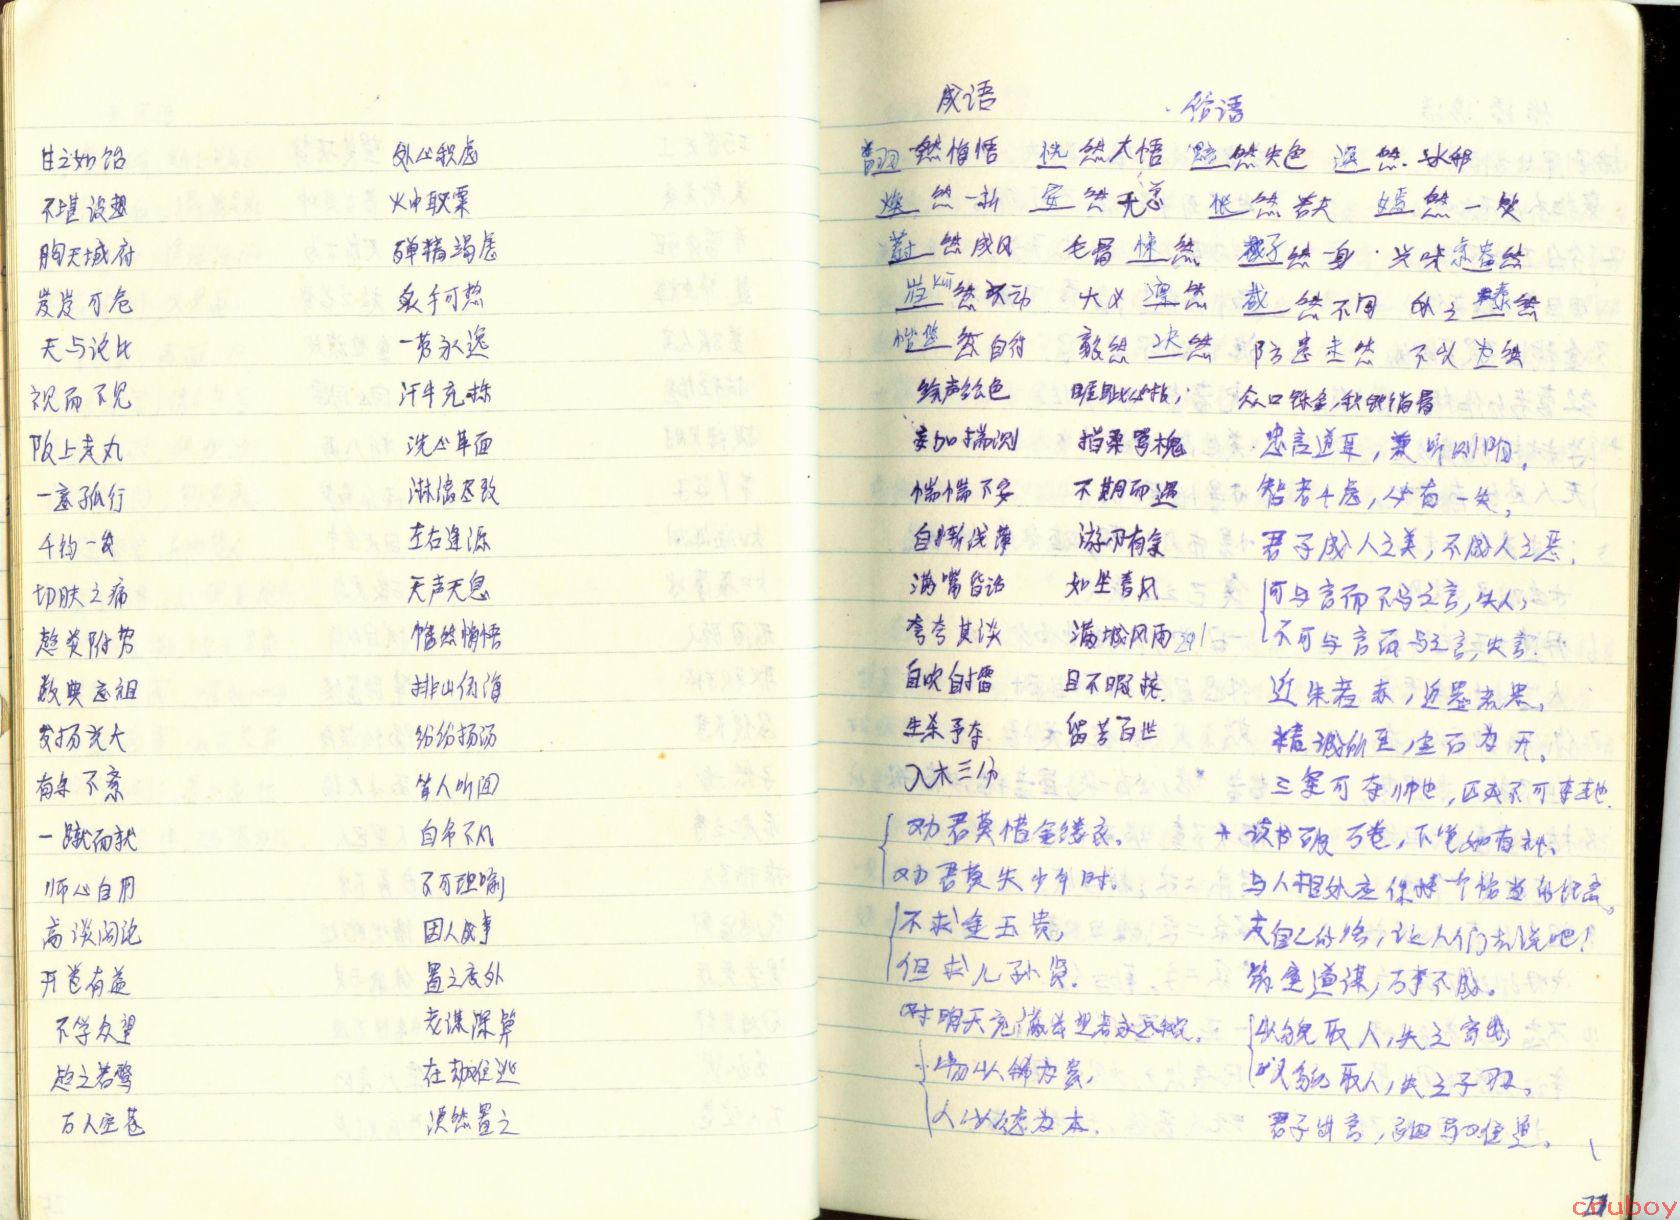 甘之如饴 处心积虑
不堪设想 火中取栗
胸无城府 殚精竭虑
岌岌可危 炙手可热
无与论比 一劳永逸
视而不见 汗牛充栋
阪上走丸 洗心革面
一意孤行 淋漓尽致
千钧一发 左右逢源
切肤之痛 无声无息
趋炎附势 幡然悔悟
数典忘祖 排山倒海
发扬光大 纷纷扬扬
有条不紊 耸人听闻
一蹴而就 自命不凡
师心自用 不可理喻
高谈阔论 因人成事
开卷有益 置之度外
不孚众望 老谋深算
趋之若鹜 在劫难逃
万人空巷 漠然置之
成语 俗语
翻然悔悟 恍然大悟 黯然失色 迥然
焕然一新 安然无恙 怅然若失 嫣然一笑
蔚然成风 毛骨悚然 孑然一身 兴味索然
岿然不动 大义凛然 截然不同 处之泰然
毅然决然 防患未然 不以为然
绘声绘色 睚眦必报; 众口铄金,积毁销骨
妄加揣测 指桑骂槐 忠言逆耳,兼听则明。
惴惴不安 不期而遇 智者千虑,必有一失。
自惭浅薄 游刃有余 君子成人之美,不成人之恶;
满嘴昏话 如坐春风 可与言而不与之言,失人;
夸夸其谈 满城风雨 不可与言而与之言,失言.
自吹自擂 目不暇接. 近朱者赤,近墨者黑。
生杀予夺 留芳百世 精诚所至,金石为开。
入木三分 三军可夺帅也,匹夫不可夺志也.
劝君莫惜金缕衣, 读书破万卷,下笔如有神。
劝君莫失少年时. 与人相处应保持一个恰当的距离。
不求金玉贵, 走自己的路,让人们去说吧!
但求儿孙贤. 筑室道谋,万事不成。
对明天充满 以貌取人,失之
物以稀为贵, 以貌取人,失之子羽。
人以德为本. 君子出言,驷马难追。
couboy